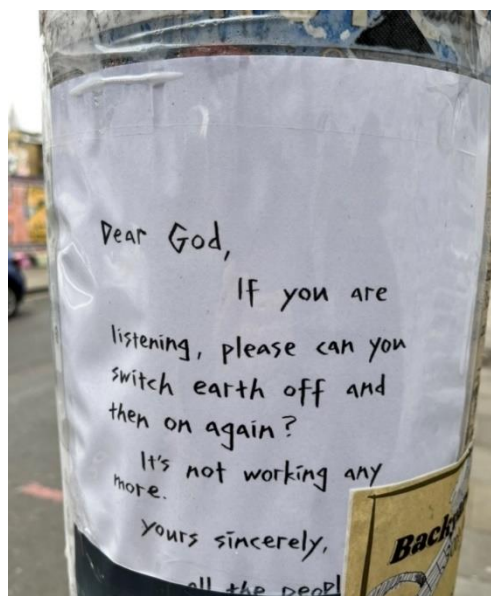 Dear God,
If you are
listening, please can you
switch earth off and
then on again?
It's not working any
more.
yours sincerely,
all the